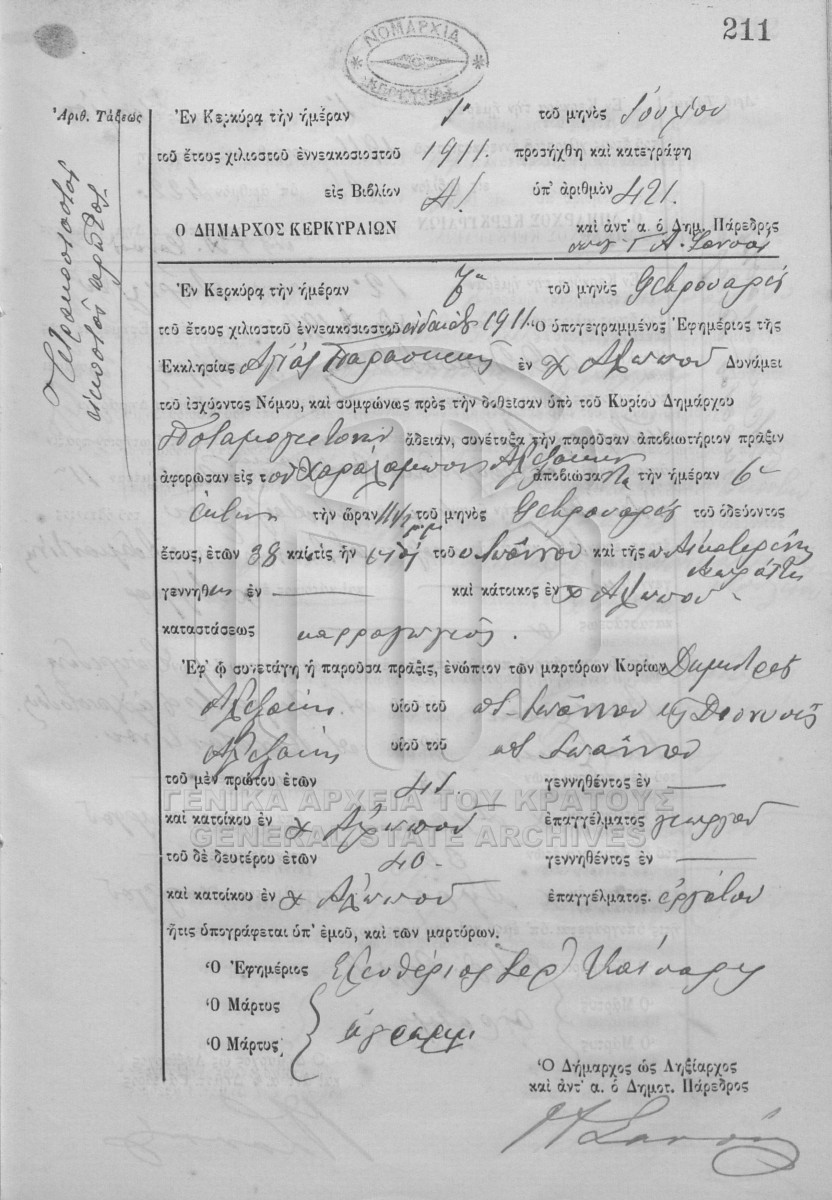 211
ΝΟΜΑΡΧΙΑ
ΚΕΡΚΥΡΑΣ
Ἀριθ. Τάξεως
Τετρακοσιοστὸν
εἰκοστὸν πρῶτον
Ἐν Κερκύρᾳ τὴν ἡμέραν τοῦ μηνὸς Ἰουλίου
τοῦ ἔτους χιλιοστοῦ ἐννεακοσιοστοῦ 1911. προσήχθη καὶ κατεγράφη
εἰς Βιβλίον Α! ὑπ' ἀριθμὸν 421.
Ο ΔΗΜΑΡΧΟΣ ΚΕΡΚΥΡΑΙΩΝ καὶ ἀντ' α. ὁ Δημ. Πάρεδρος
Ἐν Κερκύρᾳ τὴν ἡμέραν 7η τοῦ μηνὸς Φεβρουαρίου
τοῦ ἔτους χιλιοστοῦ ἐννεακοσιοστοῦ ἑνδεκάτου 1911. Ὁ ὑπογεγραμμένος Ἐφημέριος τῆς
Ἐκκλησίας Ἁγίας Παρασκευῆς ἐν χ Δυνάμει
τοῦ ἰσχύοντος Νόμου, καὶ συμφώνως πρὸς τὴν δοθεῖσαν ὑπὸ τοῦ Κυρίου Δημάρχου
Ποταμογειτόνων ἄδειαν, συνέταξα τὴν παροῦσαν ἀποβιωτήριον πρᾶξιν
ἀφορῶσαν εἰς τὸν Χαράλαμπον ἀποβιώσαντα τὴν ἡμέραν 6η
ἕκτην τὴν ὥραν 11 1/2 μ.μ. τοῦ μηνὸς Φεβρουαρίου τοῦ ὁδεύοντος
ἔτους, ἐτῶν 38 καὶ τις ἦν υἱὸς τοῦ Ἰωάννου καὶ τῆς Αἰκατερίνης
γεννηθεὶς ἐν — καὶ κάτοικος ἐν χ
καταστάσεως καρραγωγεύς.
Ἐφ' ᾧ συνετάγη ἡ παροῦσα πρᾶξις, ἐνώπιον τῶν μαρτύρων Κυρίων Δημητρίου
υἱοῦ τοῦ ποτ. Ἰωάννου καὶ Διονυσίου
υἱοῦ τοῦ ποτ. Ἰωάννου
τοῦ μὲν πρώτου ἐτῶν γεννηθέντος ἐν —
καὶ κατοίκου ἐν χ ἐπαγγέλματος γεωργοῦ
τοῦ δὲ δευτέρου ἐτῶν 40 - γεννηθέντος ἐν —
καὶ κατοίκου ἐν χ ἐπαγγέλματος. ἐργάτου
ἥτις ὑπογράφεται ὑπ' ἐμοῦ, καὶ τῶν μαρτύρων.
Ὁ Ἐφημέριος Ἐλευθέριος Ἱερ
Ὁ Μάρτυς
Ὁ Μάρτυς ἀγράμμ
Ὁ Δήμαρχος ὡς Ληξίαρχος
καὶ ἀντ' α. ὁ Δημοτ. Πάρεδρος
ΓΕΝΙΚΑ ΑΡΧΕΙΑ ΤΟΥ ΚΡΑΤΟΥΣ
GENERAL STATE ARCHIVES